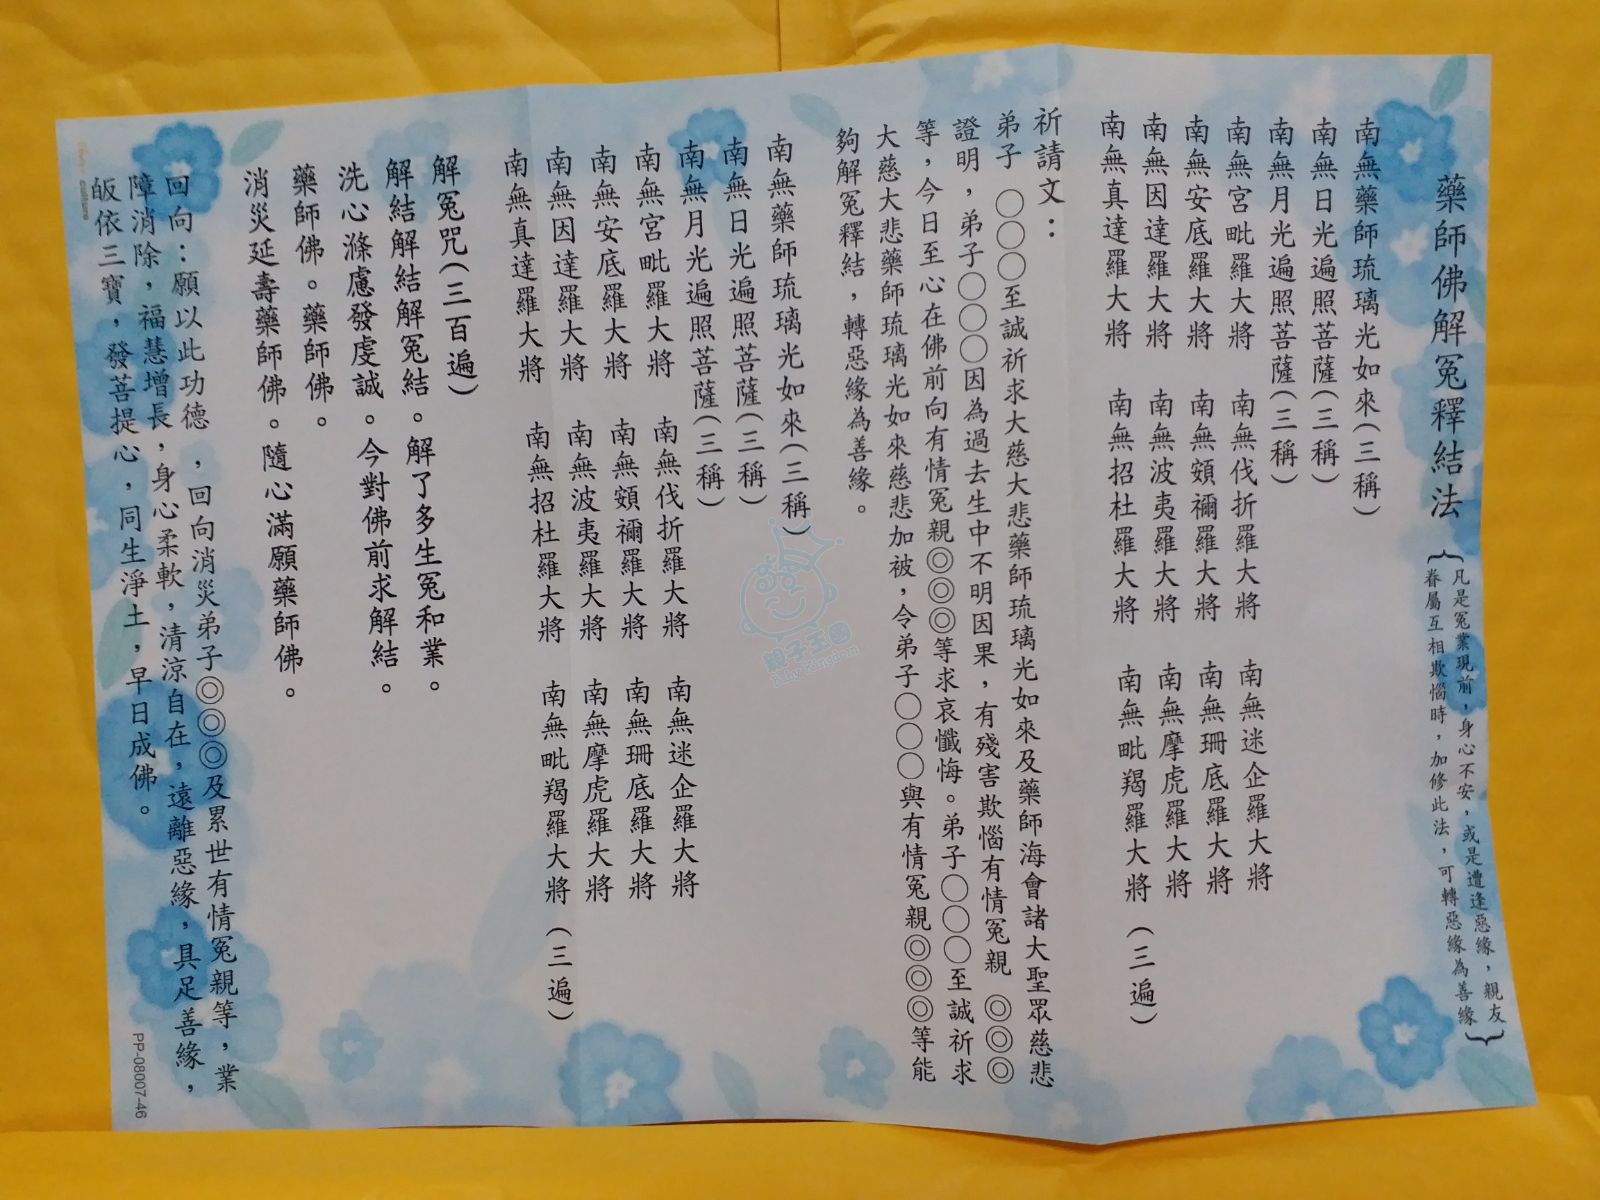 藥師佛解冤釋結法
{凡是冤業現前，身心不安，或是遭逢惡緣，親友
眷屬互相欺惱時，加修此法，可轉惡緣為善緣}
南無藥師琉璃光如來(三稱)
南無日光遍照菩薩(三稱)
南無月光遍照菩薩(三稱)
南無宮毗羅大將 南無伐折羅大將 南無迷企羅大將
南無安底羅大將 南無頞禰羅大將 南無珊底羅大將
南無因達羅大將 南無波夷羅大將 南無摩虎羅大將
南無真達羅大將 南無招杜羅大將 南無毗羯羅大將(三遍)
祈請文：
弟子 〇〇〇至誠祈求大慈大悲藥師琉璃光如來及藥師海會諸大聖眾慈悲
證明，弟子〇〇〇因為過去生中不明因果，有殘害欺惱有情冤親 ◎◎◎
等，今日至心在佛前向有情冤親◎◎◎等求哀懺悔。弟子〇〇〇至誠祈求
大慈大悲藥師琉璃光如來慈悲加被，令弟子〇〇〇與有情冤親◎◎◎等能
夠解冤釋結，轉惡緣為善緣。
南無藥師琉璃光如來(三稱)
南無日光遍照菩薩(三稱)
南無月光遍照菩薩(三稱)
南無宮毗羅大將 南無伐折羅大將 南無迷企羅大將
南無安底羅大將 南無頞禰羅大將 南無珊底羅大將
南無因達羅大將 南無波夷羅大將 南無摩虎羅大將
南無真達羅大將 南無招杜羅大將 南無毗羯羅大將(三遍)
解冤咒(三百遍)
解結解結解冤結。解了多生冤和業。
洗心滌慮發虔誠。今對佛前求解結。
藥師佛。藥師佛。
消災延壽藥師佛。隨心滿願藥師佛。
回向：願以此功德，回向消災弟子◎◎◎及累世有情冤親等，業
障消除，福慧增長，身心柔軟，清涼自在，遠離惡緣，具足善緣，
皈依三寶，發菩提心，同生淨土，早日成佛。
PP-08007-46
親子王國
Baby Kingdom